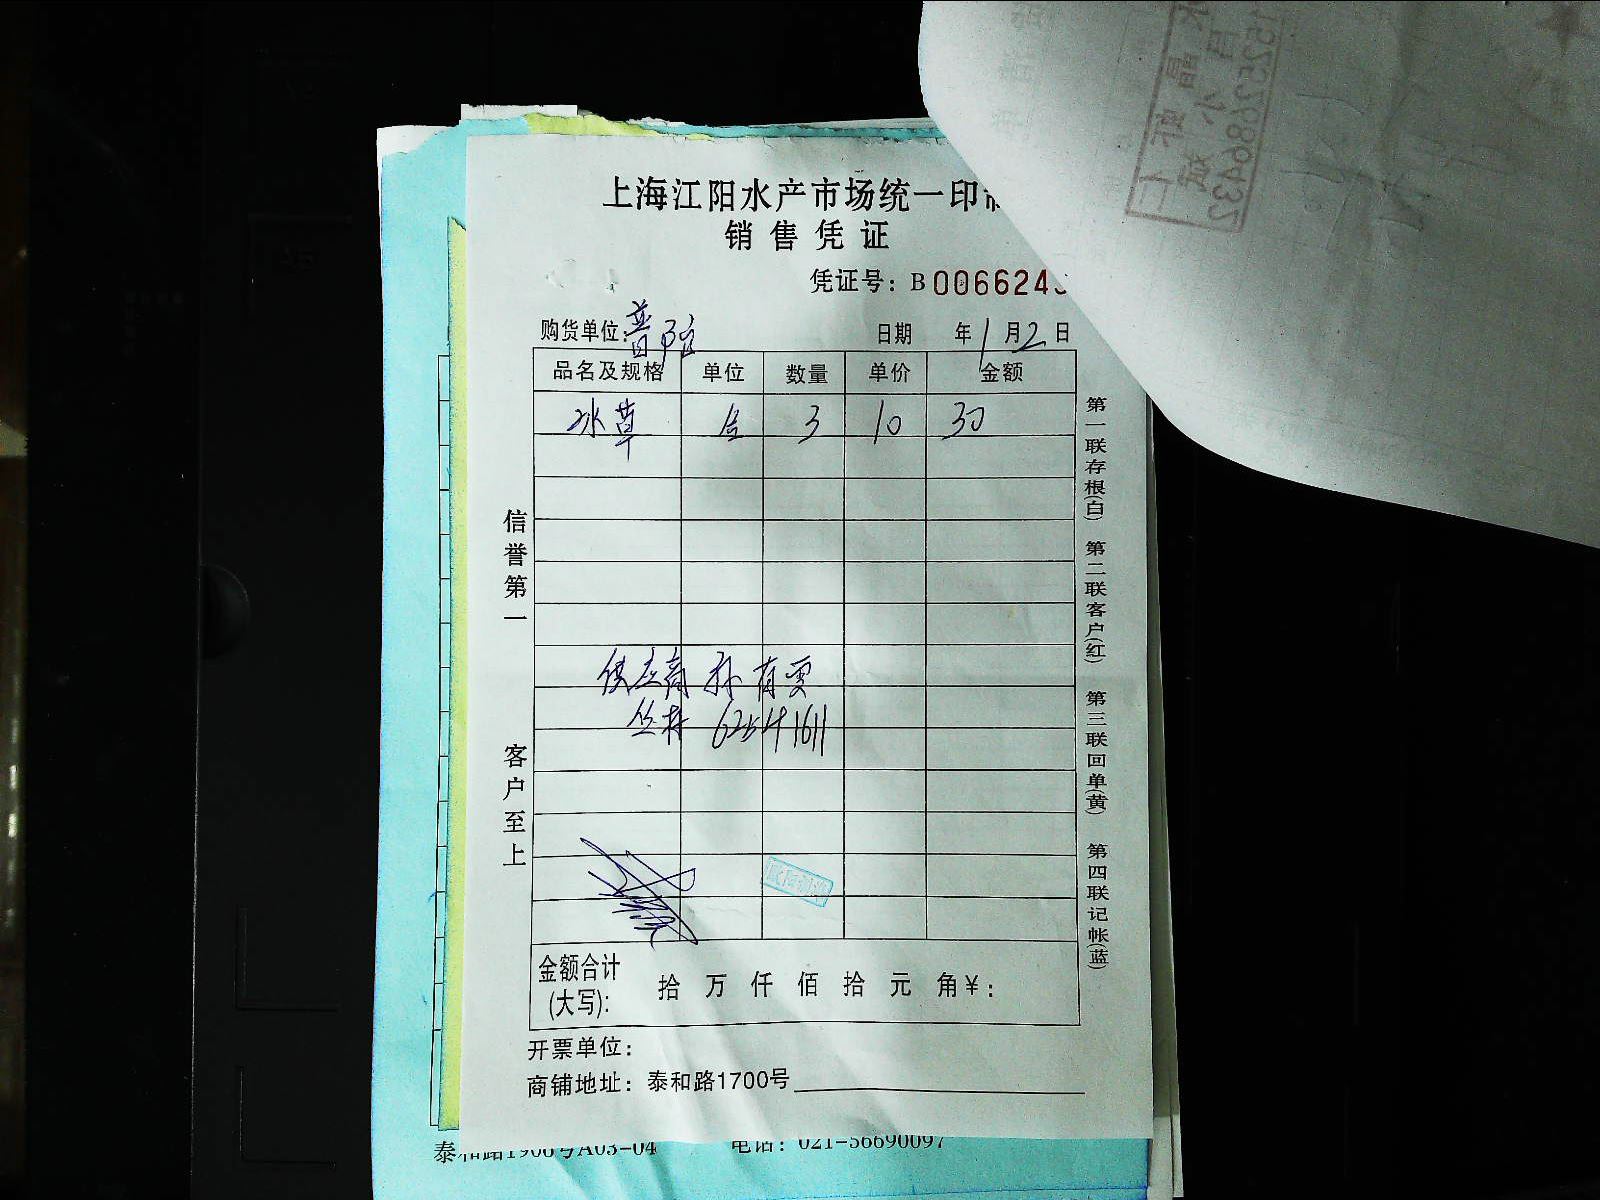 上海江阳水产市场统一印
销售凭证
凭证号：B 0066243
购货单位：普陀 日期 年1月2日
品名及规格 单位 数量 单价 金额
冰草 合 3 10 30
供应商 孙有雯
丛林 62541611
金额合计(大写): 拾 万 仟 佰 拾 元 角 ¥:
开票单位：
商铺地址：泰和路1700号
信誉第一
客户至上
第一联存根(白) 第二联客户(红) 第三联回单(黄) 第四联记帐(蓝)
泰和路1908号A03-04 电话：021-56690097
15252686432